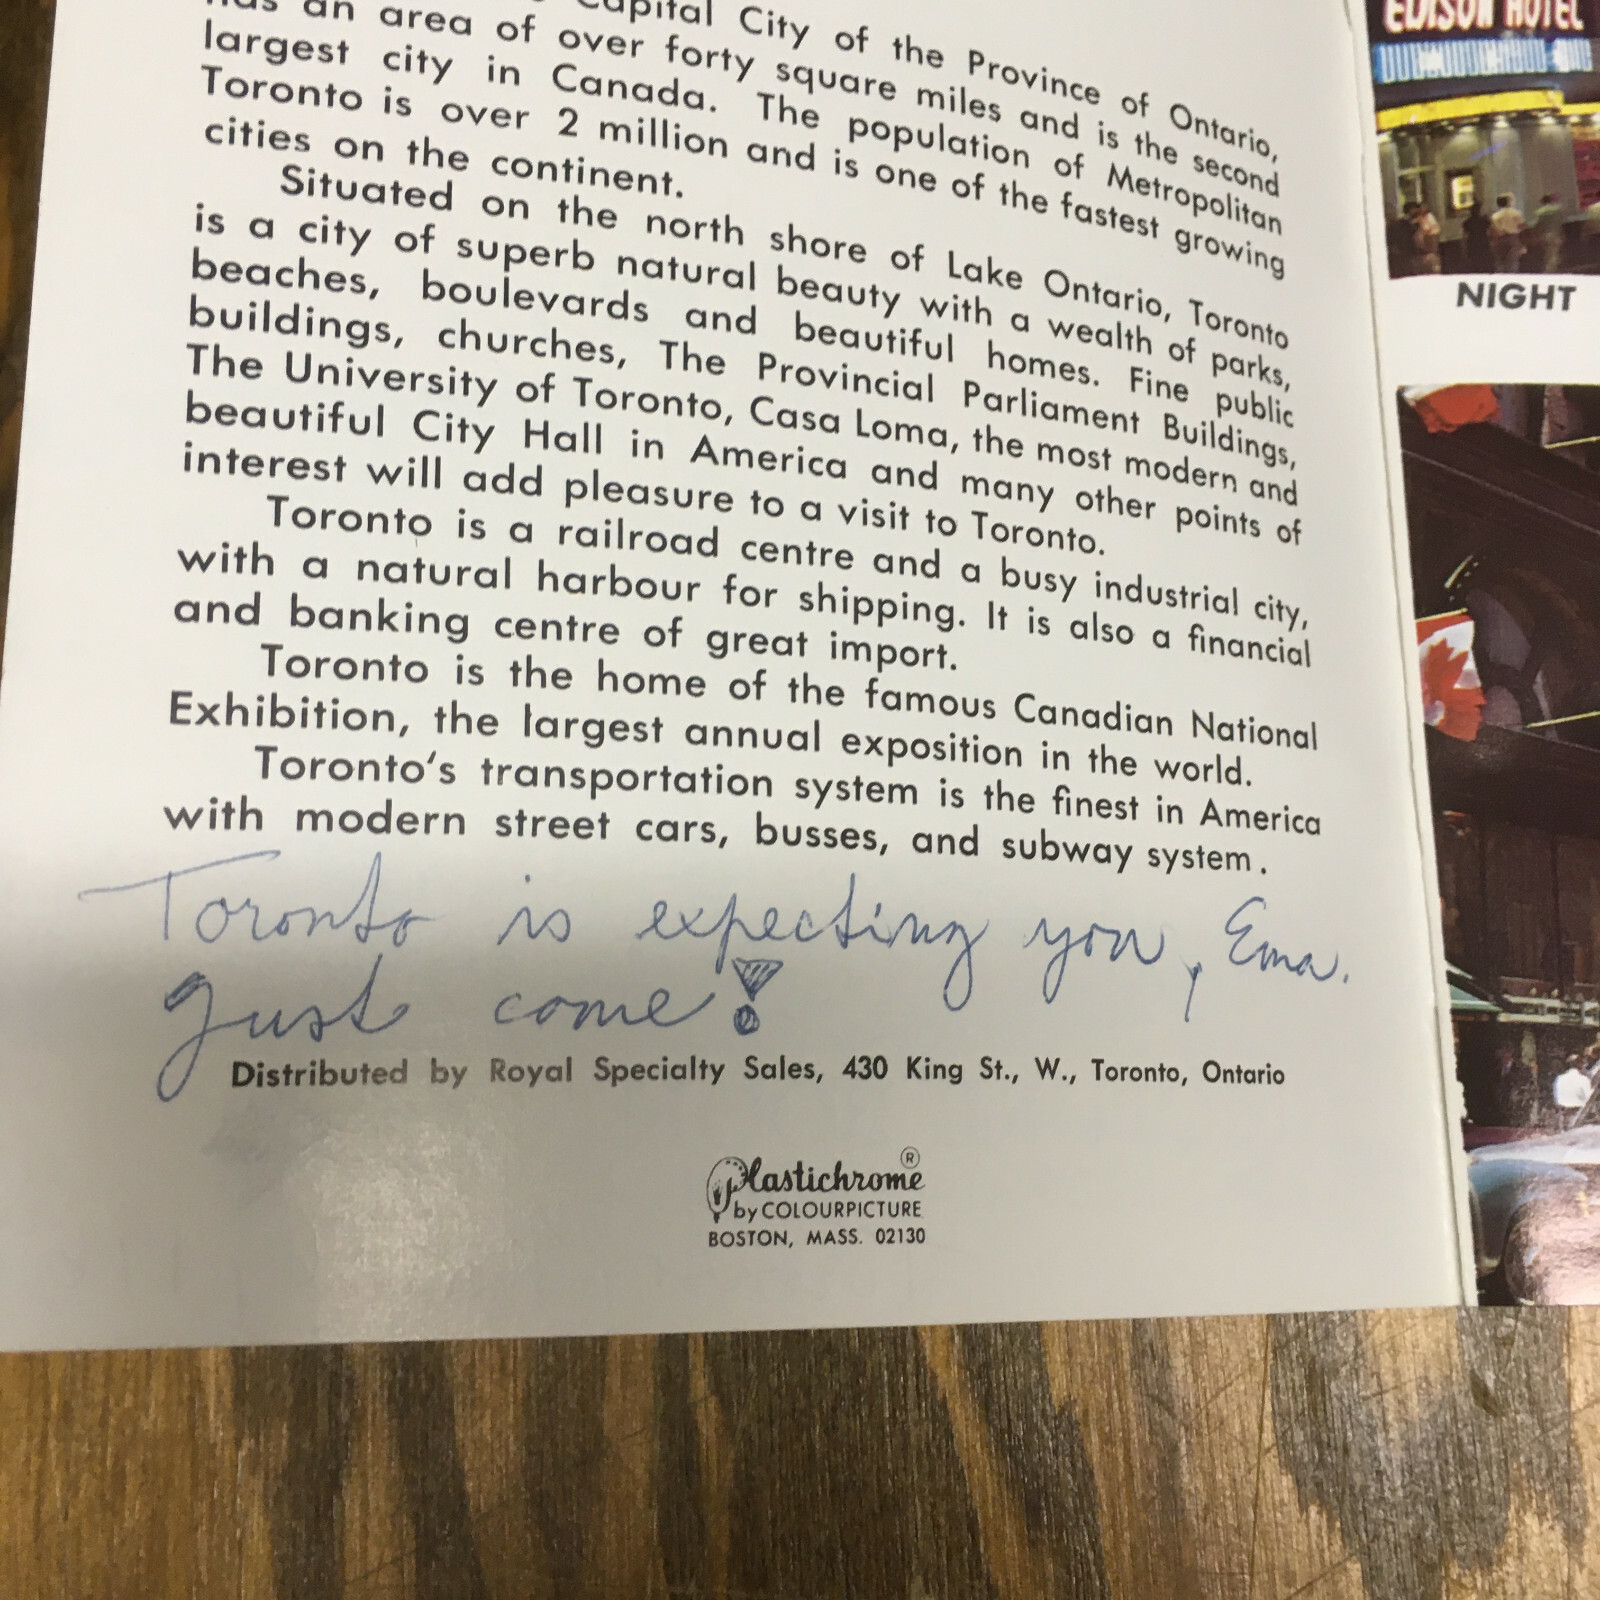 Capital City of the Province of Ontario,
has an area of over forty square miles and is the second
largest city in Canada. The population of Metropolitan
Toronto is over 2 million and is one of the fastest growing
cities on the continent.
Situated on the north shore of Lake Ontario, Toronto
is a city of superb natural beauty with a wealth of parks,
beaches, boulevards and beautiful homes. Fine public
buildings, churches, The Provincial Parliament Buildings,
The University of Toronto, Casa Loma, the most modern and
beautiful City Hall in America and many other points of
interest will add pleasure to a visit to Toronto.
Toronto is a railroad centre and a busy industrial city,
with a natural harbour for shipping. It is also a financial
and banking centre of great import.
Toronto is the home of the famous Canadian National
Exhibition, the largest annual exposition in the world.
Toronto's transportation system is the finest in America
with modern street cars, busses, and subway system.
Toronto is expecting you, Ema.
Just come!
Distributed by Royal Specialty Sales, 430 King St., W., Toronto, Ontario
Plastichrome ®
by COLOURPICTURE
BOSTON, MASS. 02130
EDISON HOTEL
NIGHT